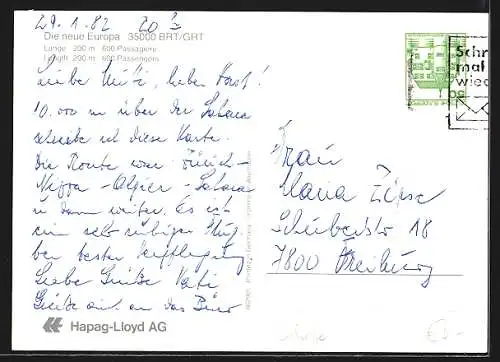 29.1.82 20³
Die neue Europa 35000 BRT/GRT
Länge 200 m 600 Passagiere
Length 200 m 600 Passengers
Liebe Mutti, lieber Horst!
10.000 m über der Sahara
schreibe ich diese Karte.
Die Route war Zürich-
Nizza - Algier - Sahara
u. dann weiter. Es ist
ein sehr ruhiger Flug
bei bester Verpflegung
Liebe Grüße
Grüße auch an das Büro
Hapag-Lloyd AG
Frau
Maria
7800 Freiburg
Schr
mal
wied